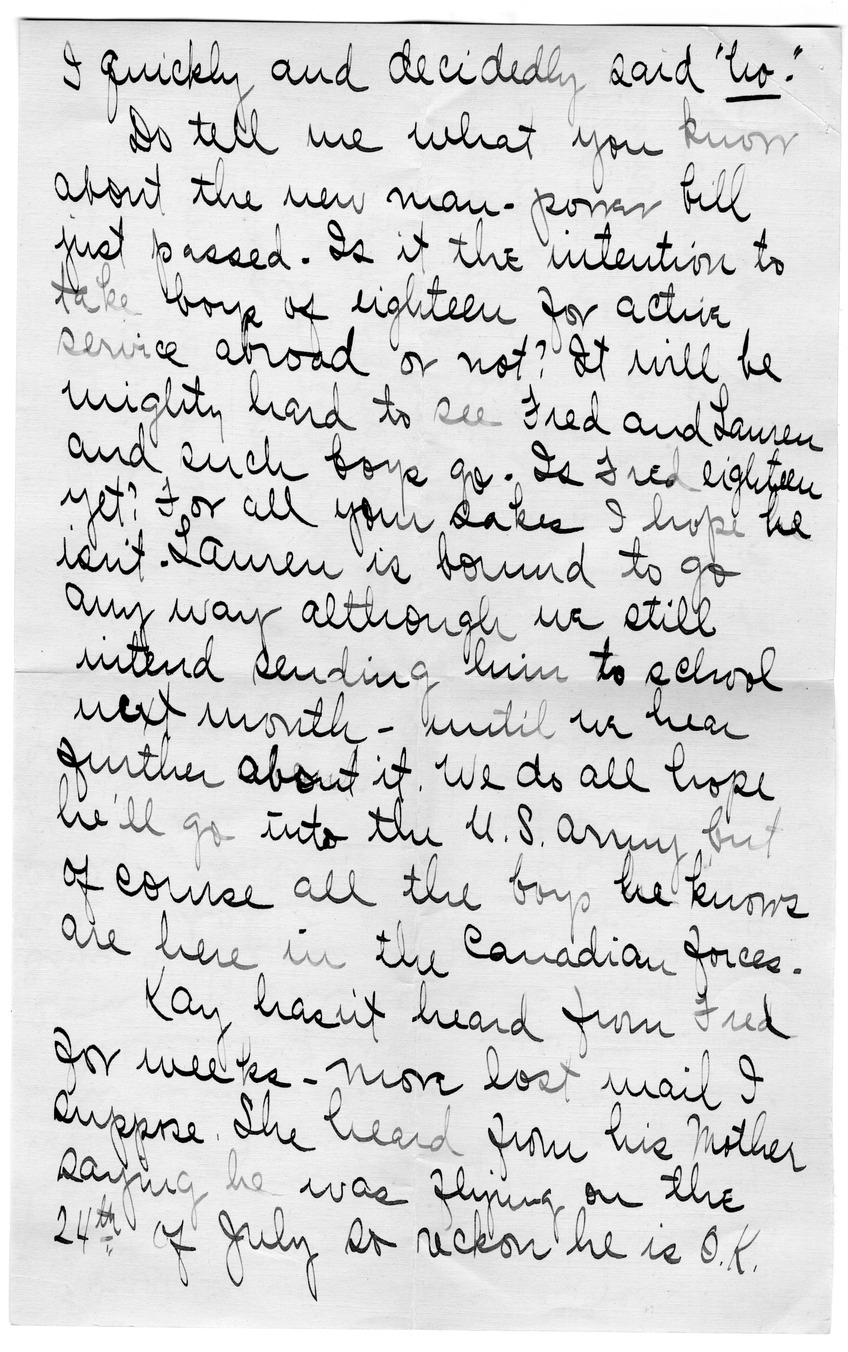 I quickly and decidedly said "no."
Do tell me what you know
about the new man-power bill
just passed. Is it the intention to
take boys of eighteen for active
service abroad or not? It will be
mighty hard to see Fred and Lauren
and such boys go. Is Fred eighteen
yet? For all your sakes I hope he
isn't. Lauren is bound to go
any way although we still
intend sending him to school
next month - until we hear
further about it. We do all hope
he'll go into the U.S. Army but
of course all the boys he knows
are here in the Canadian forces.
Kay hasn't heard from Fred
for weeks - more lost mail I
suppose. She heard from his Mother
saying he was flying on the
24th of July so reckon he is O.K.